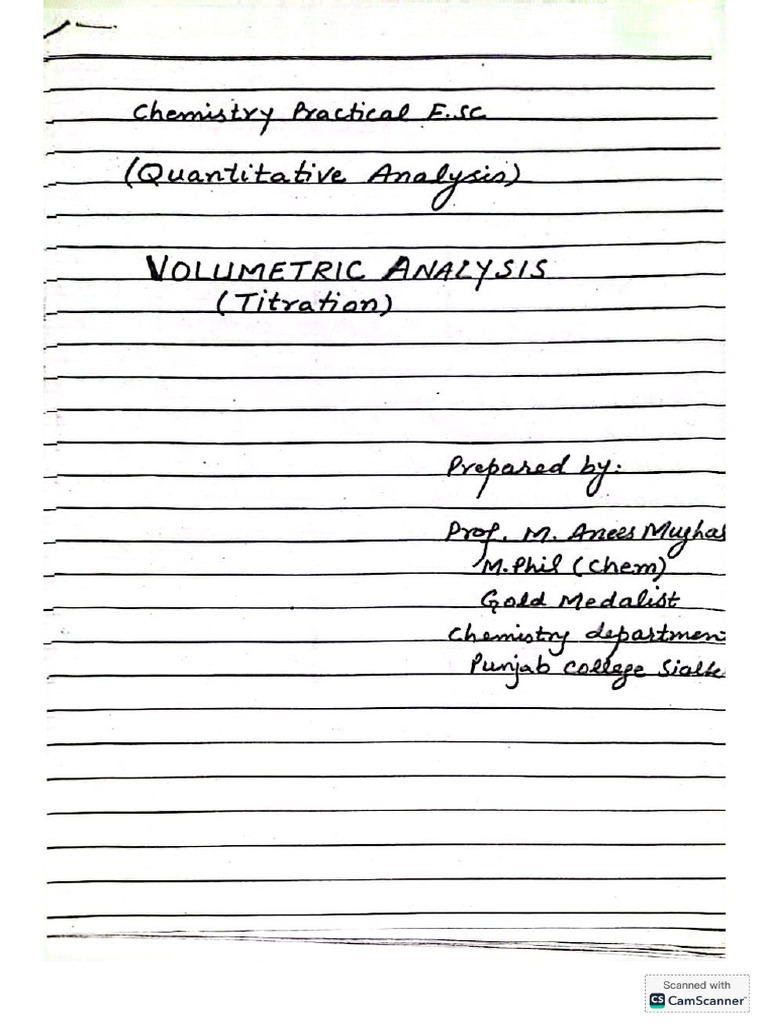 Chemistry Practical F.Sc
(Quantitative Analysis)
VOLUMETRIC ANALYSIS
(Titration)
Prepared by:
Prof. M. Anees Mughal
M.Phil (Chem)
Gold Medalist
Chemistry departmen
Punjab College Sialk
Scanned with
CS CamScanner